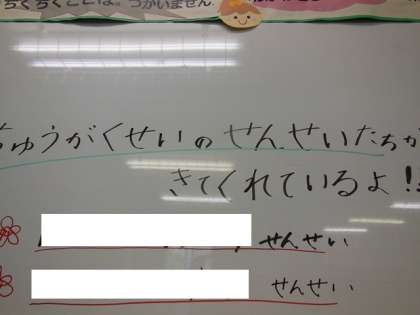 ちくちくことば。つかいません。
ちゅうがくせいのせんせいたちが
きてくれているよ!!
せんせい
せんせい